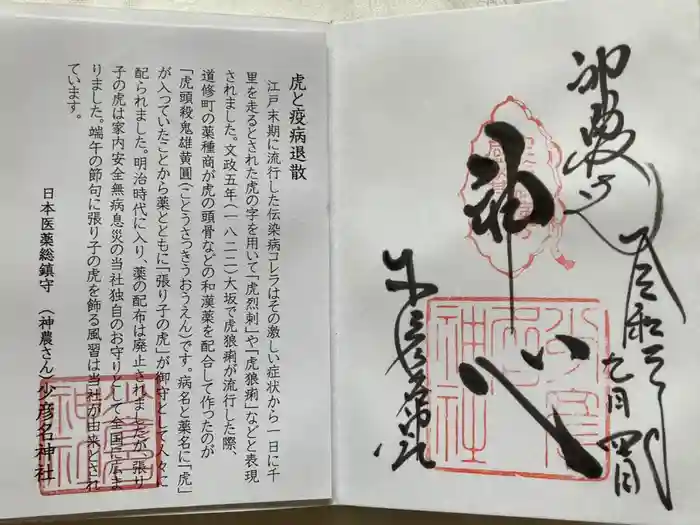 虎と疫病退散
江戸末期に流行した伝染病コレラはその激しい症状から一日に千
里を走るとされた虎の字を用いて「虎烈刺」や「虎狼痢」などと表現
されました。文政五年(一八二二)大坂で虎狼痢が流行した際、
道修町の薬種商が虎の頭骨などの和漢薬を配合して作ったのが
「虎頭殺鬼雄黄圓(ことうさっきうおうえん)」です。病名と薬名に「虎」
が入っていたことから薬とともに「張り子の虎」が御守として人々に
配られました。明治時代に入り、薬の配布は廃止されましたが、張り
子の虎は家内安全無病息災の当社独自のお守りとして全国に広ま
りました。端午の節句に張り子の虎を飾る風習は当社が由来とされ
ています。
日本医薬総鎮守 (神農さん)少彦名神社
少彦名神社
神
心
少彦名神社
九月